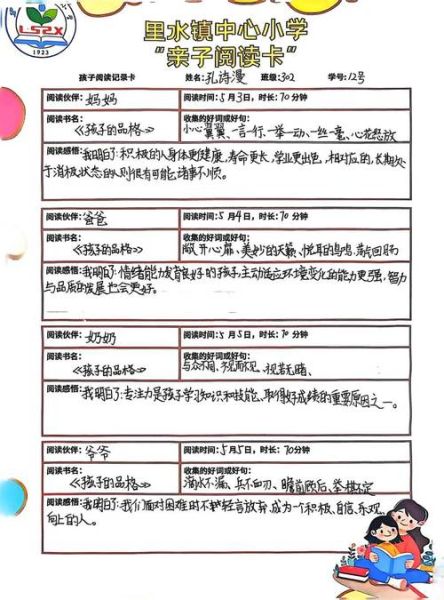 LSZX
1923
里水镇中心小学
“亲子阅读卡”
孩子阅读记录卡 姓名:孔诗漫 班级:302 学号:12号
阅读伙伴:妈妈 阅读时间:5月3日,时长:70分钟
阅读书名: 收集的好词或好句:
《孩子的品格》 小心翼翼、一言一行、一举一动、一丝一毫、心花怒放
阅读感悟:我明白了:积极的人身体更健康,寿命更长,学业更出色,相对应的,长期处
于消极状态的人则很有可能诸事不顺。
阅读伙伴:爸爸 阅读时间:5月4日,时长:70分钟
阅读书名: 收集的好词或好句:
《孩子的品格》 敞开心扉、美妙的天籁、悦耳的鸟鸣、荡气回肠
阅读感悟:我明白了:情绪能力发育良好的孩子,主动适应环境变化的能力更强,智力
与品质的发展也会更好。
阅读伙伴:奶奶 阅读时间:5月5日,时长:70分钟
阅读书名: 收集的好词或好句:
《孩子的品格》 与众不同、视而不见、视若无睹、
阅读感悟:我明白了:专注力是孩子学习知识和技能、取得好成绩的重要原因之一。
阅读伙伴:爷爷 阅读时间:5月5日,时长:70分钟
阅读书名: 收集的好词或好句:
《孩子的品格》 滴水不漏、兵不血刃、瞻前顾后、举棋不定
阅读感悟:我明白了:我们面对困难时不轻言放弃,成为一个积极、自信、乐观、
向上的人。